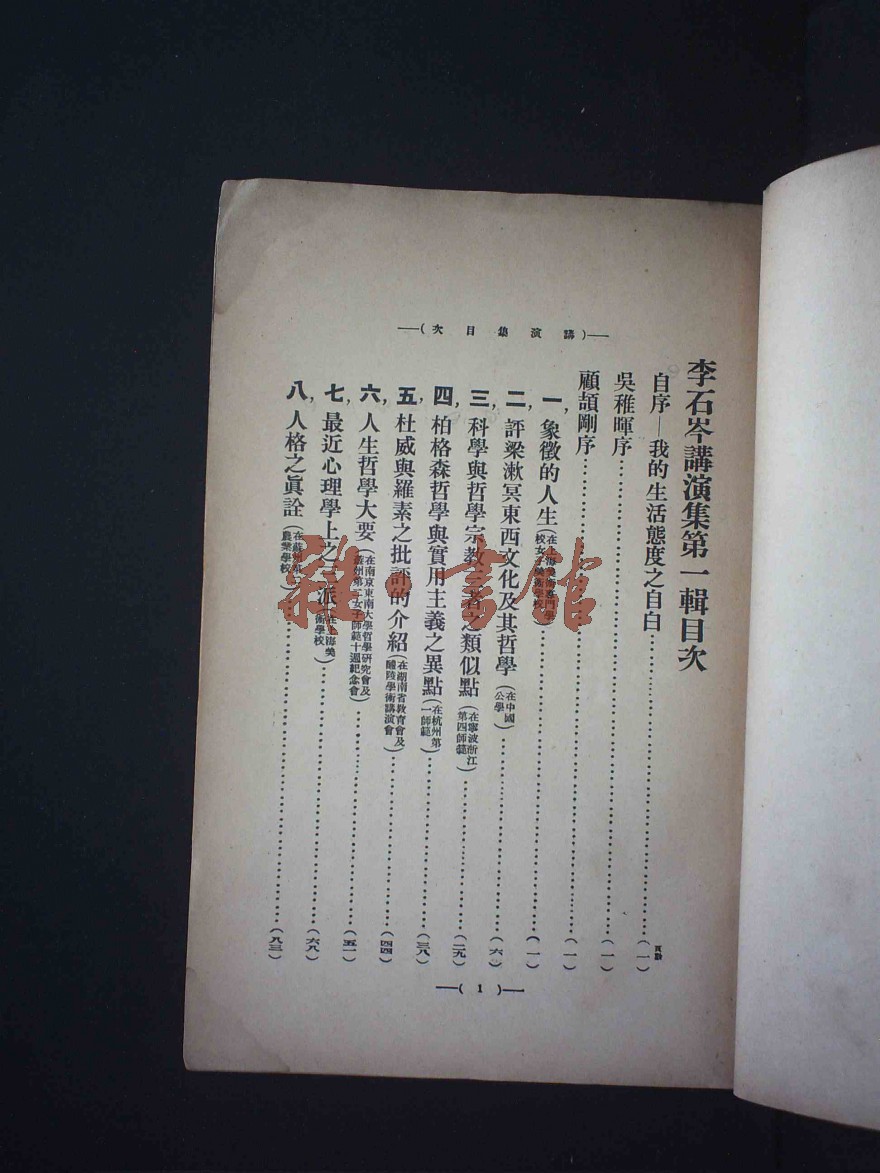 (講演集目次)
李石岑講演集第一輯目次
頁數
自序—我的生活態度之自白……(一)
吳稚暉序……(一)
顧頡剛序……(一)
一,象徵的人生(在上海美術專門學校女子美術學校)……(一)
二,評梁漱冥東西文化及其哲學(在中國公學)……(六)
三,科學與哲學宗教三者之類似點(在寧波浙江第四師範)……(二九)
四,柏格森哲學與實用主義之異點(在杭州第一師範)……(三八)
五,杜威與羅素之批評的介紹(在湖南省教育會及醴陵學術講演會)……(四四)
六,人生哲學大要(在南京東南大學哲學研究會及蘇州第二女子師範十週紀念會)……(五一)
七,最近心理學上之二派(在上海美術學校)……(六八)
八,人格之眞詮(在蘇州第二農業學校)……(八三)
(1)
雜·書館